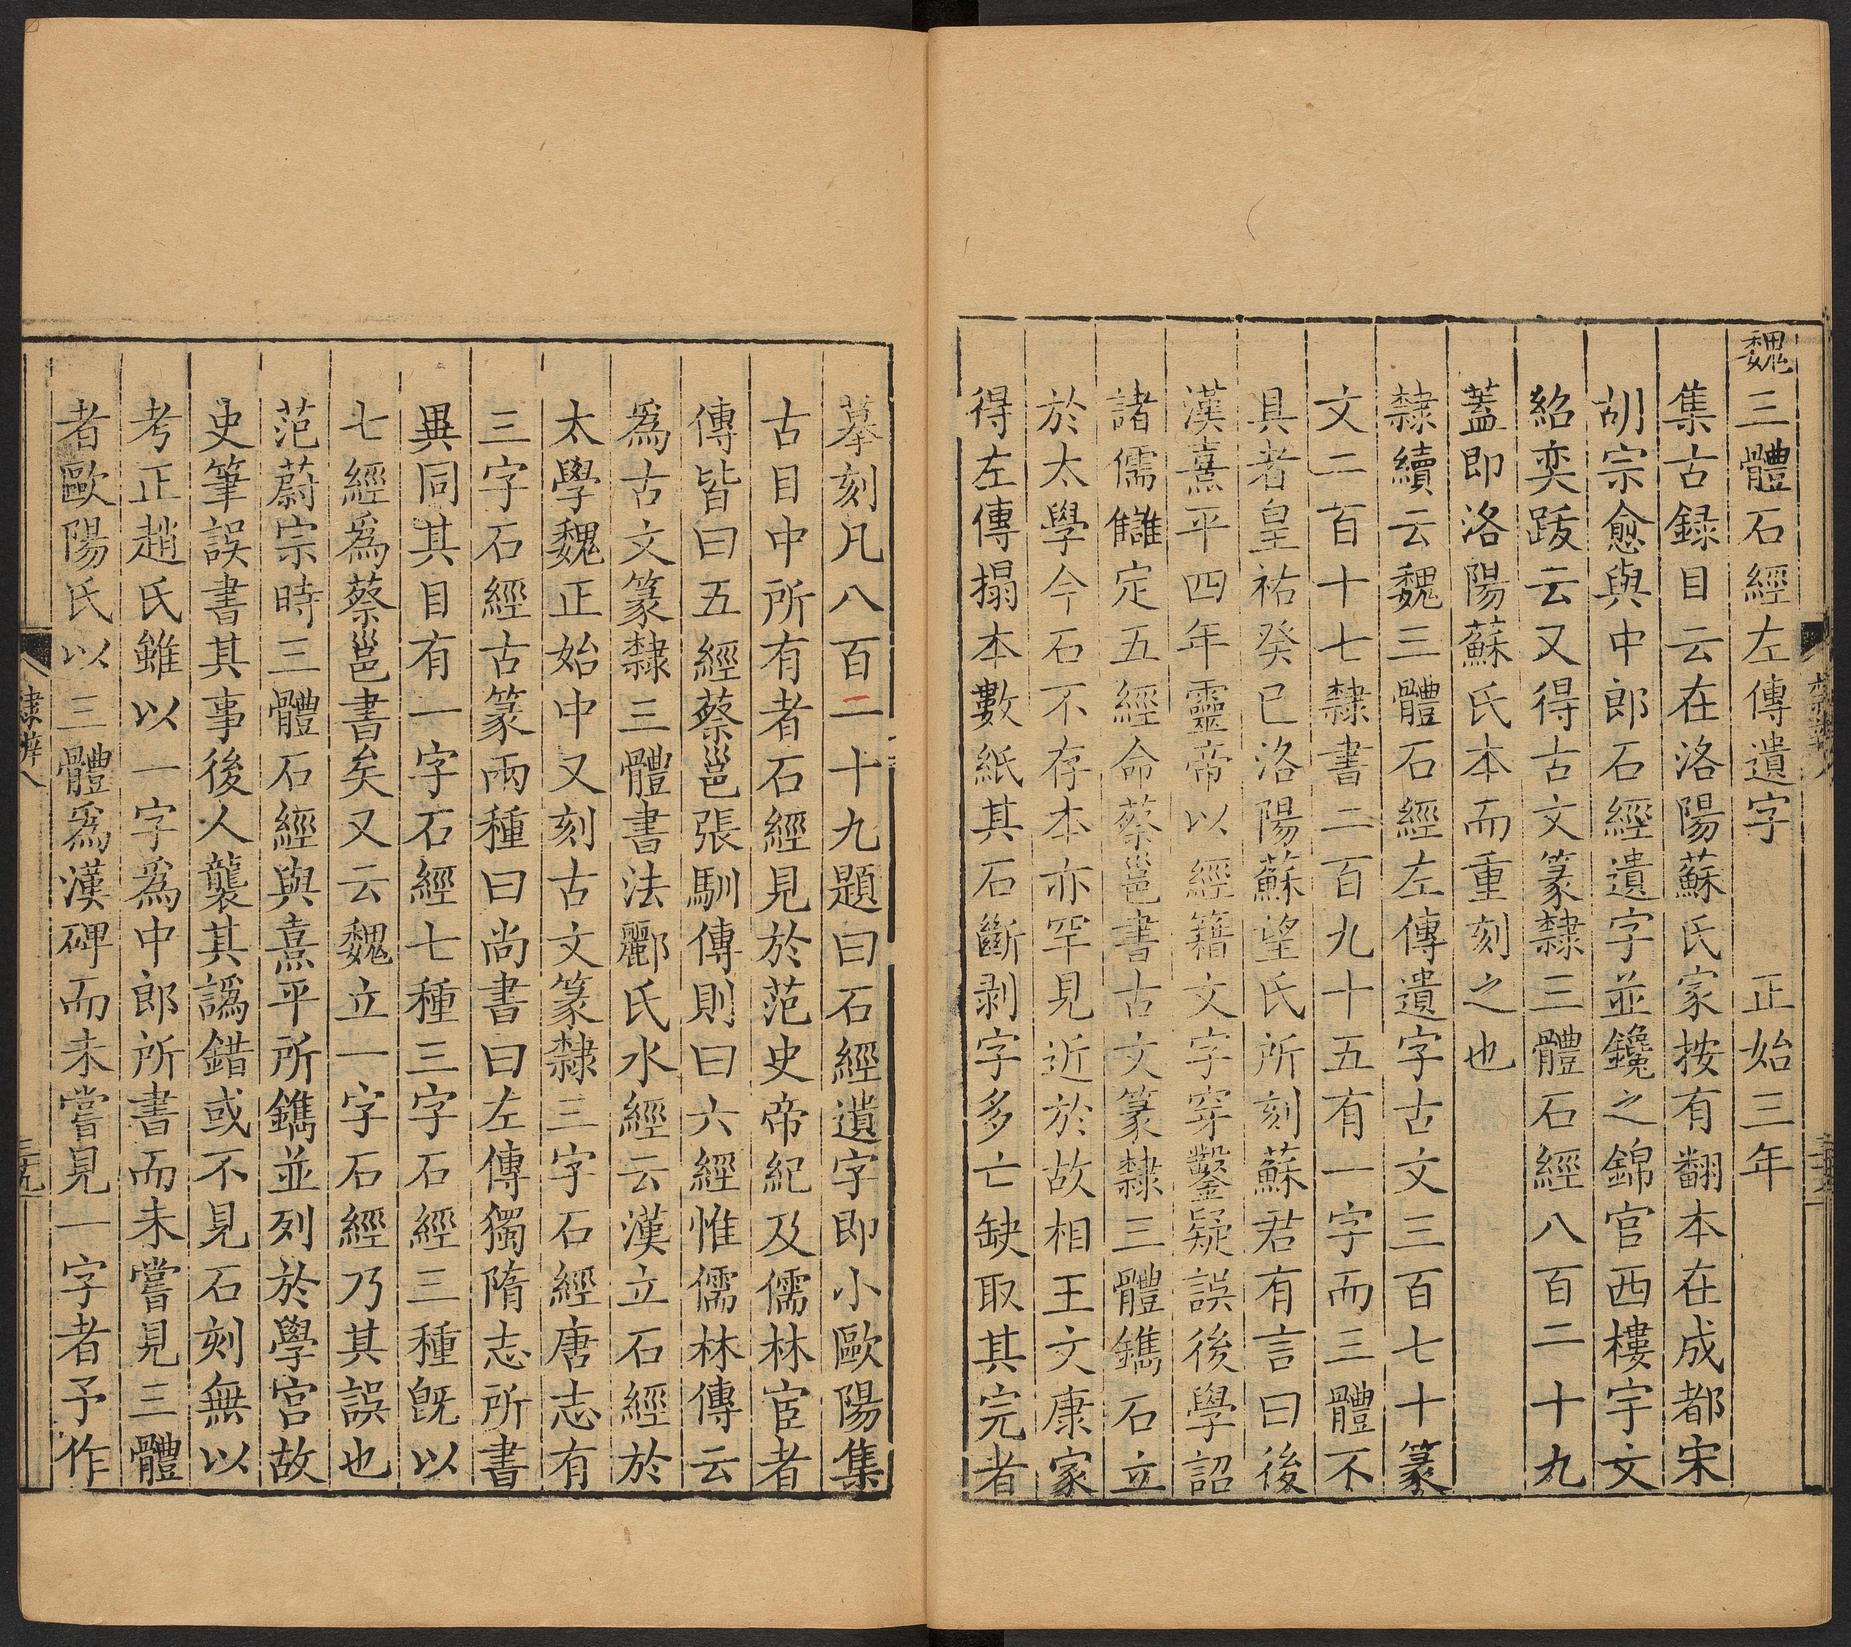 魏三體石經左傳遺字　正始三年
集古録目云在洛陽蘇氏家按有翻本在成都宋
胡宗愈與中郎石經遺字並鑱之錦官西樓宇文
紹奕跋云又得古文篆隸三體石經八百二十九
蓋即洛陽蘇氏本而重刻之也
隸續云魏三體石經左傳遺字古文三百七十篆
文二百十七隸書二百九十五有一字而三體不
具者皇祐癸巳洛陽蘇望氏所刻蘇君有言曰後
漢熹平四年靈帝以經籍文字穿鑿疑誤後學詔
諸儒讎定五經命蔡邕書古文篆隸三體鐫石立
於太學今石不存本亦罕見近於故相王文康家
得左傳搨本數紙其石斷剥字多亡缺取其完者
摹刻凡八百一十九題曰石經遺字即小歐陽集
古目中所有者石經見於范史帝紀及儒林宦者
傳皆曰五經蔡邕張馴傳則曰六經惟儒林傳云
爲古文篆隸三體書法酈氏水經云漢立石經於
太學魏正始中又刻古文篆隸三字石經唐志有
三字石經古篆兩種曰尚書曰左傳獨隋志所書
異同其目有一字石經七種三字石經三種旣以
七經爲蔡邕書矣又云魏立一字石經乃其誤也
范蔚宗時三體石經與熹平所鐫並列於學宫故
史筆誤書其事後人襲其譌錯或不見石刻無以
考正趙氏雖以一字爲中郎所書而未嘗見三體
者歐陽氏以三體爲漢碑而未嘗見一字者予作
隸辨八